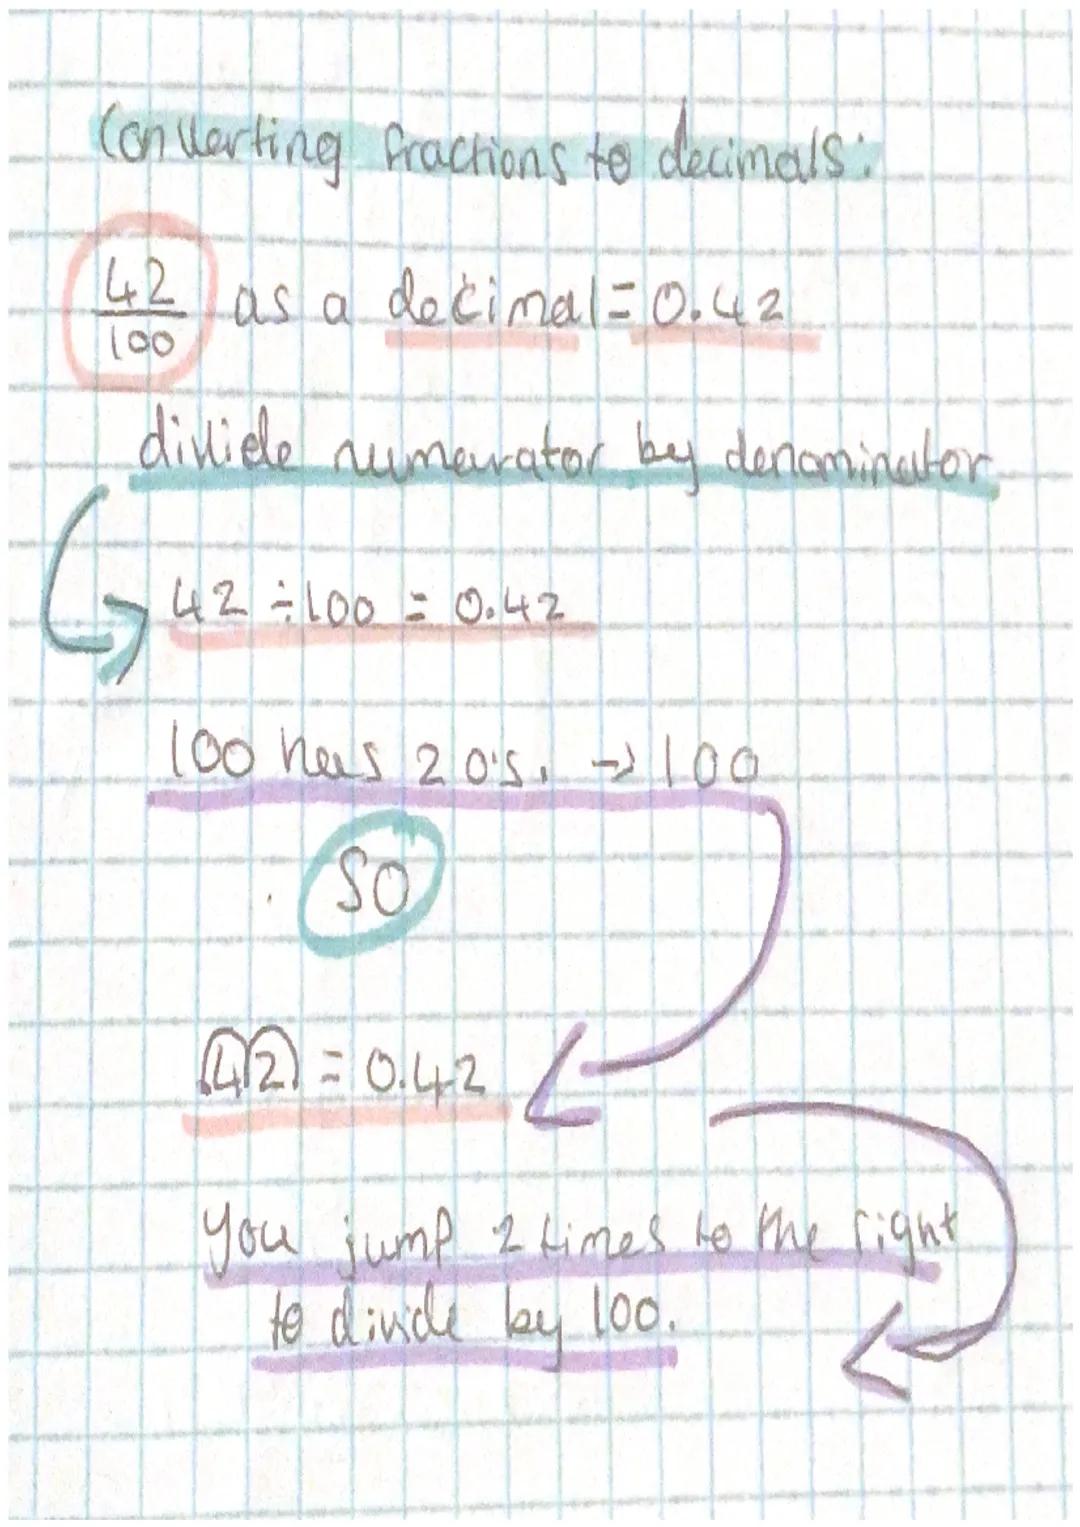 Converting fractions to decimals:
42/100 as a decimal = 0.42
divide numerator by denominator
42 ÷ 100 = 0.42
100 has 2 0's. → 100
SO
.42. = 0.42
you jump 2 times to the right
to divide by 100.